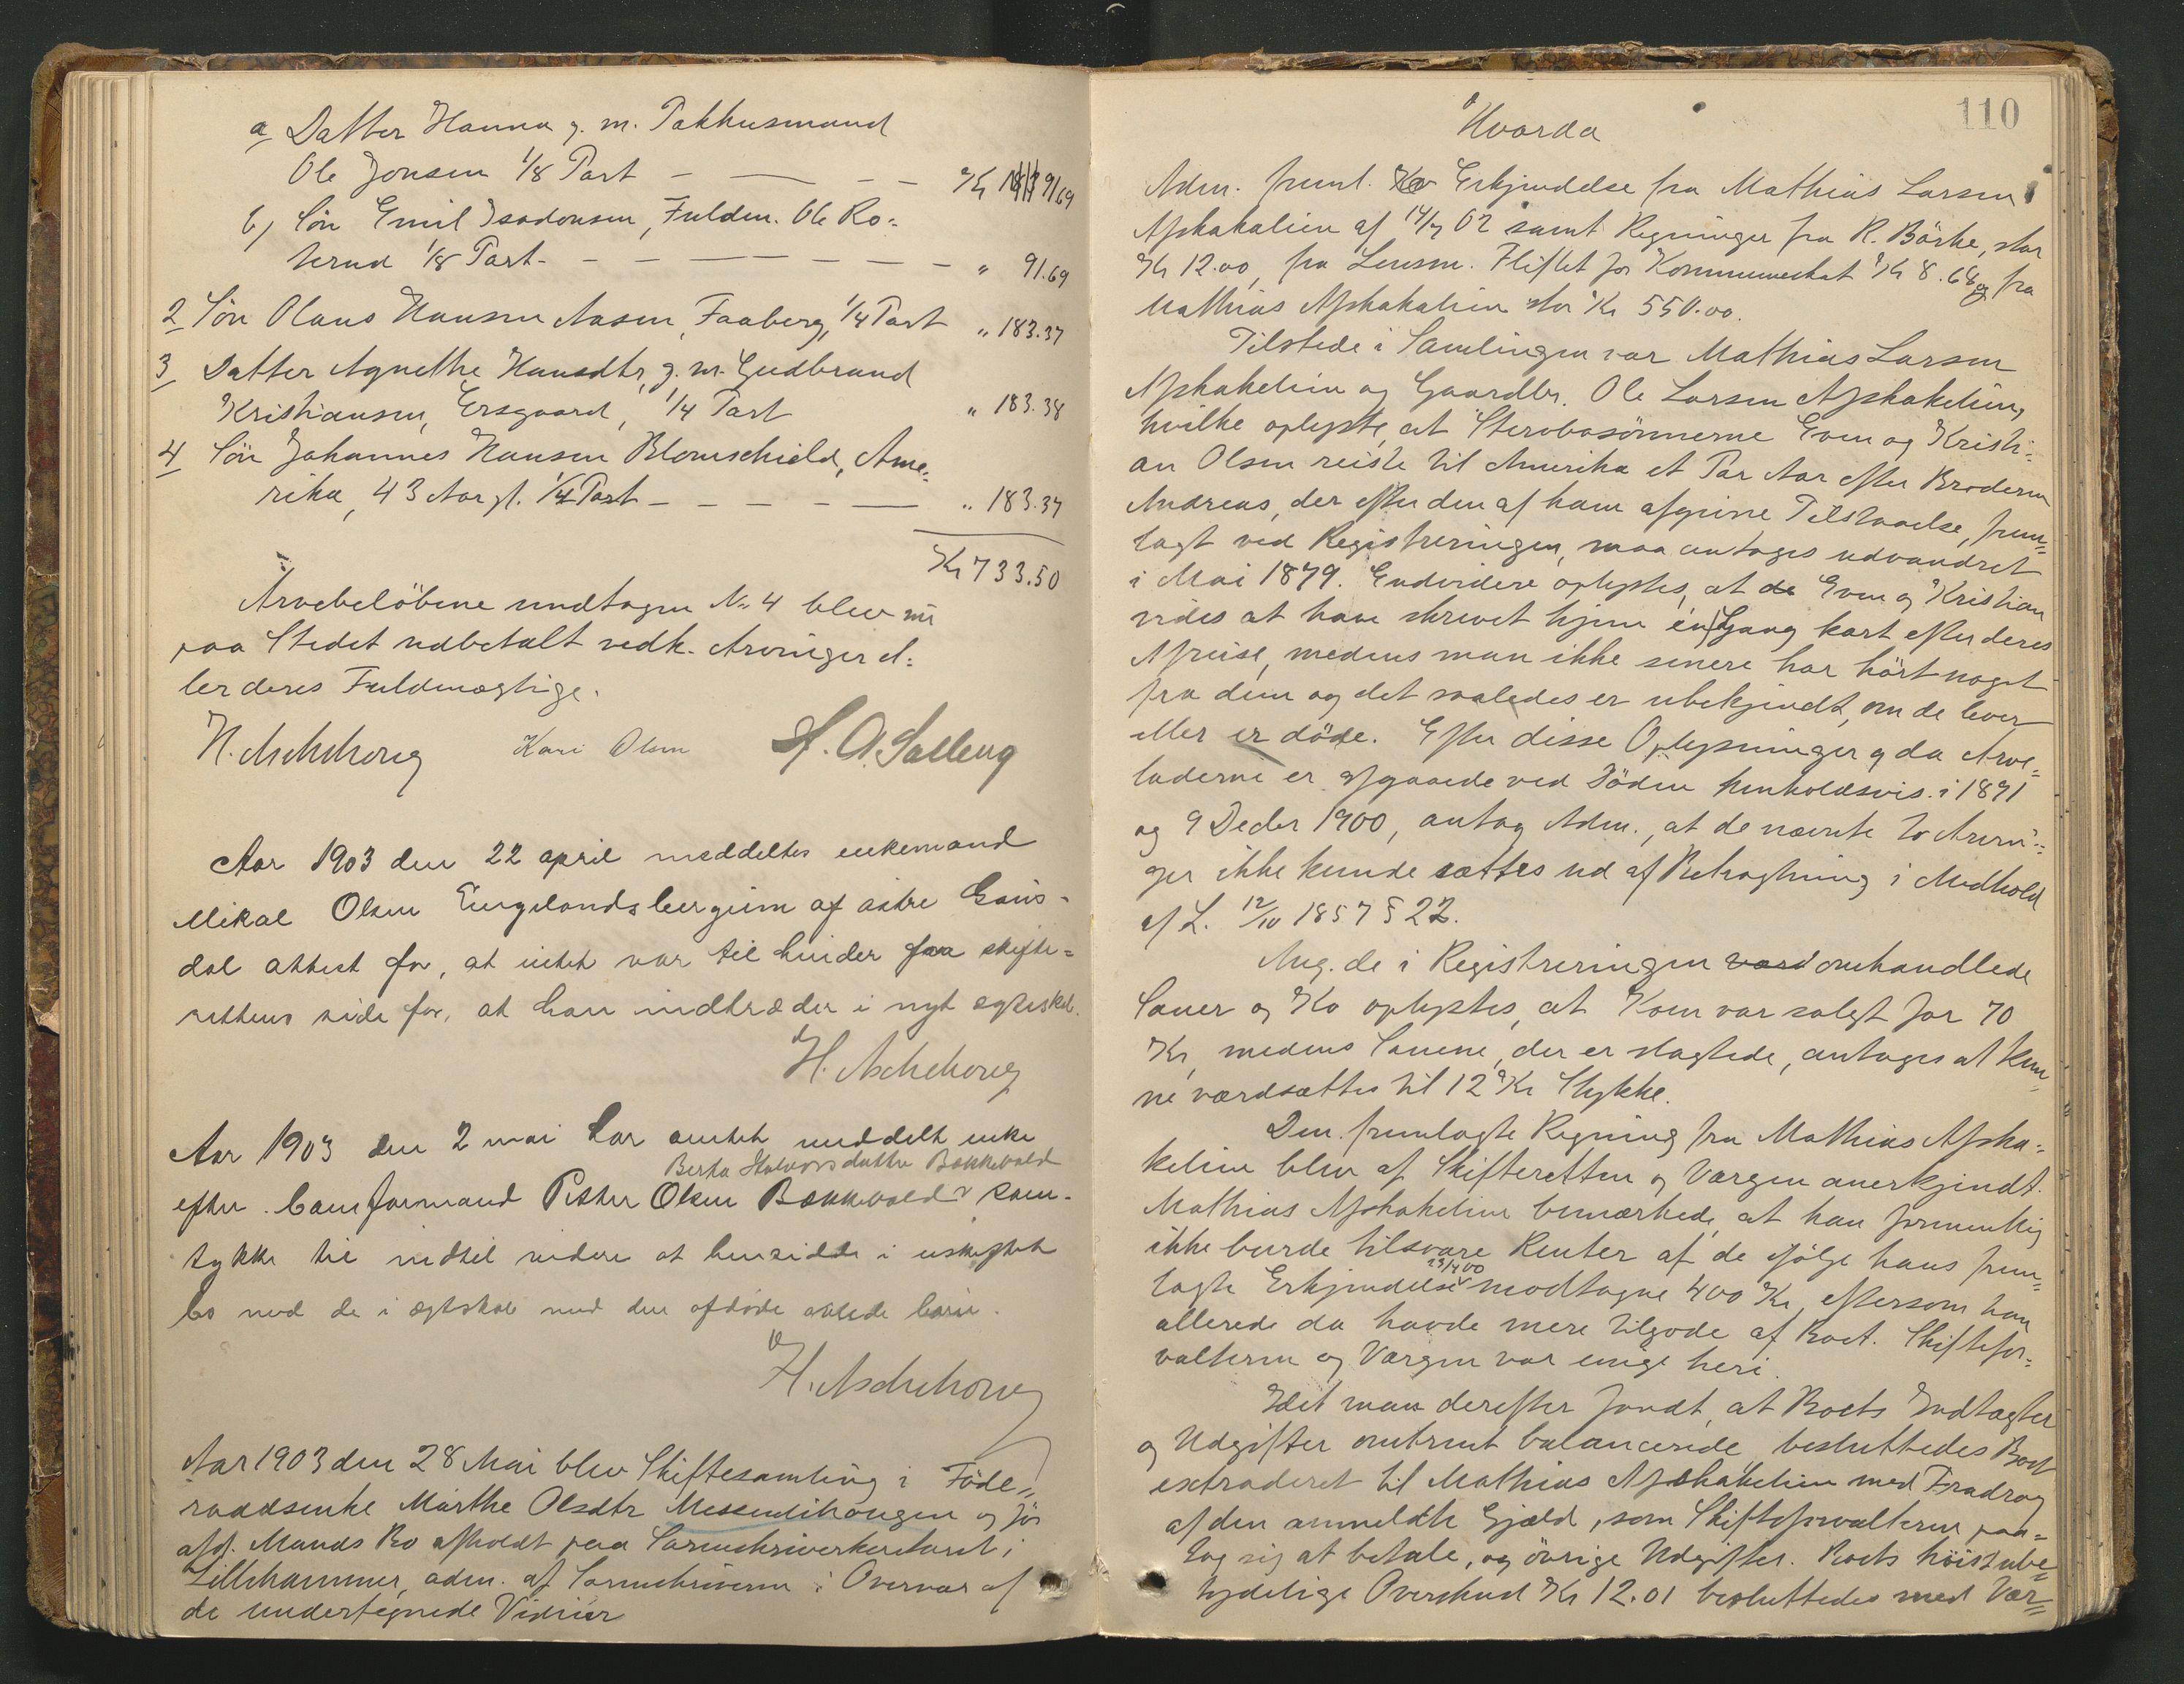 a Datter Hanna g. m. Pakhusmand
Ole Jonsen 1/8 Part — — — Kr 91.69
b) Søn Emil Isadonsen, Fuldm. Ole Ro-
terud 1/8 Part - - - - - - - „ 91.69
2 Søn Olaus Hansen Aasen, Faaberg, 1/4 Part „ 183.37
3 Datter Agnethe Hansdtr, g. m. Gudbrand
Kristiansen, Ersgaard, 1/4 Part „ 183.38
4 Søn Johannes Hansen Blomschield, Ame-
rika, 43 Aar gl. 1/4 Part - - - - — „ 183.37
Kr 733.50
Arvebeløbene undtagen No 4 blev nu
paa Stedet udbetalt vedk. Arvinger el-
ler deres Fuldmægtige.
H. Aschehoug Kari Olsen H. O. Salleng
Aar 1903 den 22 april meddeltes enkemand
Mikal Olsen Engelandsbergeim af østre Gaus-
dal attest for, at intet var til hinder fra skifte-
rettens side for, at han indtræder i nyt ægteskab.
H. Aschehoug
Aar 1903 den 2 mai har amtet meddelt enke
Berta Halvorsdatter Bakkevold
efter Petter Olsen Bakkevold sam-
tykke til indtil videre at hensidde i uskiftet
bo med de i ægtskab med den afdøde avlede barn.
H. Aschehoug
Aar 1903 den 28 Mai blev Skiftesamling i Føde-
raadsenke Marthe Olsdtr Messenlihaugen og før
afd. Mands Bo afholdt paa Sorenskriverkontoret i
Lillehammer, adm. af Sorenskriveren i Overvær af
de undertegnede Vidner
110
Hvorda
Adm. freml. Erkjendelse fra Mathias Larsen
Afskakelien af 14/7 02 samt Regninger fra R. Børke, stor
Kr 12.00, fra Lensm. Fliflet for Kommuneskat Kr 8.68 og fra
Mathias Afskakelien stor Kr 550.00.
Tilstede i Samlingen var Mathias Larsen
Afskakelien og Gaardbr. Ole Larsen Afskakelien,
hvilke oplyste, at Stervbosønnerne Even og Kristi-
an Olsen reiste til Amerika et Par Aar efter Broderen
Andreas, der efter den af ham afgivne Tilstaaelse, frem-
lagt ved Registreringen, maa antages udvandret
i Mai 1879. Endvidere oplystes, at de Even og Kristian
vides at have skrevet hjem én Gang kort efter deres
Afreise, medens man ikke senere har hørt noget
fra dem og det saaledes er ubekjendt, om de lever
eller er døde. Efter disse Oplysninger og da Arve-
laderne er afgaaede ved Døden henholdsvis i 1891
og 9 Decbr 1900, antog Adm., at de nævnte to Arvin-
ger ikke kunde sættes ud af Betragtning i Medhold
af L. 12/10 1857 § 22.
Ang. de i Registreringen omhandlede
Sauer og Ko oplystes, at Koen var solgt for 70
Kr, medens Sauene, der er slagtede, antages at kun-
ne værdsættes til 12 Kr Stykke.
Den fremlagte Regning fra Mathias Afska-
kelien blev af Skifteretten og Værgen anerkjendt.
Mathias Afskakelien bemærkede, at han formentlig
ikke burde tilsvare Renter af de ifølge hans frem-
23/4 00
lagte Erkjendelse modtagne 400 Kr, eftersom han
allerede da havde mere tilgode af Boet. Skiftefor-
valteren og Værgen var enige heri.
Idet man derefter fandt, at Boets Indtægter
og Udgifter omtrent balancerede, besluttedes Boet
extraderet til Mathias Afskakelien med Fradrag
af den anmeldte Gjæld, som Skifteforvalteren paa-
tog sig at betale, og øvrige Udgifter. Boets høist ube-
tydelige Overskud Kr 12.01 besluttedes med Vær-